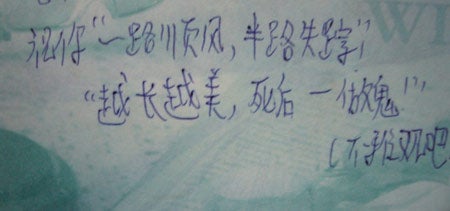 WI
祝你“一路川页风，半路失踪”
“越长越美，死后一做鬼”
（不难观吧